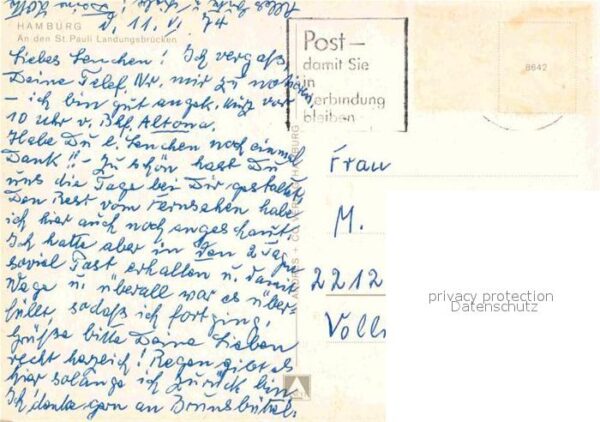 HAMBURG
v. 11. VI. 74
An den St. Pauli Landungsbrücken
Liebes Lenchen! Ich vergaß,
Deine Telef. Nr. mir zu notieren
- ich bin gut angek. kurz vor
10 Uhr v. Bhf. Altona.
Habe Du l. Lenchen noch einmal
Dank!! - Zu schön hast Du
uns die Tage bei Dir gestaltet.
Den Rest vom Fernsehen habe
ich hier auch noch angeschaut.
Ich hatte aber in den 2 Tagen
soviel Post erhalten u. damit
Wege u. überall war es über-
füllt, sodaß ich fort ging.
Grüße bitte Deine Lieben
recht herzlich! Regen gibt es
hier solange ich zurück bin
Ich denke gern an Brunsbüttel.
Post –
damit Sie
in
Verbindung
bleiben
8642
ANDRES + CO VERLAG HAMBURG
Frau
M.
2212
privacy protection
Datenschutz